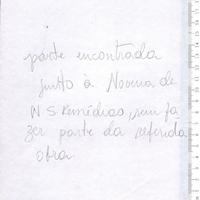 parte encontrada
junto à Novena de
N S Remédios, sem fa
zer parte da referida
obra